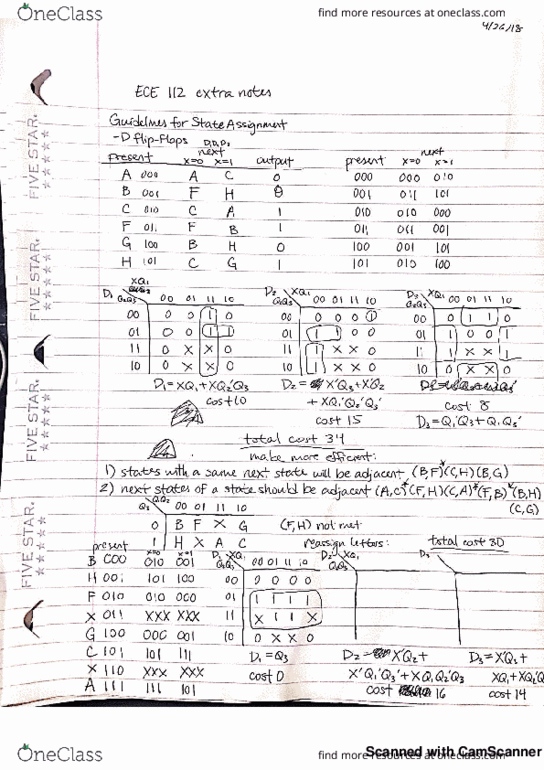 OneClass
find more resources at oneclass.com
4/26/18
ECE 112 extra notes
Guidelines for State Assignment
-D flip-flops
next next
present x=0 x=1 output present x=0 x=1
A 000 A C 0 000 000 010
B 001 F H 0 001 011 101
C 010 C A 1 010 010 000
F 011 F B 1 011 011 001
G 100 B H 0 100 001 101
H 101 C G 1 101 010 100
D₁ XQ₁ 00 01 11 10 D₂ XQ₁ 00 01 11 10 D₃ 00 01 11 10
00 0 0 1 0 00 0 0 0 1 00 0 1 1 0
01 0 0 1 1 01 1 1 0 0 01 1 0 0 1
11 0 X X 0 11 1 X X 0 11 1 X X 1
10 0 X X 0 10 1 X X 0 10 0 X X 0
D₁=XQ₁+XQ₂'Q₃ D₂= X'Q₃+X'Q₂
cost 10 + XQ₁'Q₂'Q₃' cost 8
cost 15 D₃=Q₁'Q₃+Q₁Q₃'
total cost 34
make more efficient:
1) states with a same next state will be adjacent (B,F)*(C,H)(B,G)
2) next states of a state should be adjacent (A,C)*(F,H)(C,A)*(F,B)*(B,H)
(C,G)
Q₃ 00 01 11 10
0 B F X G (F,H) not met
1 H X A C reassign letters: total cost 30
present x=0 x=1
B 000 010 001
H 001 101 100
F 010 010 000
X 011 XXX XXX
G 100 000 001
C 101 101 111
X 110 XXX XXX
A 111 111 101
D₁ XQ₁ 00 01 11 10 D₂ XQ₁ D₃
00 0 0 0 0
01 1 1 1 1
11 X 1 1 X
10 0 X X 0
D₁=Q₃ D₂= X'Q₂+ D₃=XQ₂+
cost 0 X'Q₁'Q₃'+XQ₁Q₂'Q₃
cost 16 cost 14
FIVE STAR.
FIVE STAR.
FIVE STAR.
FIVE STAR.
OneClass
find more resources at oneclass.com
Scanned with CamScanner